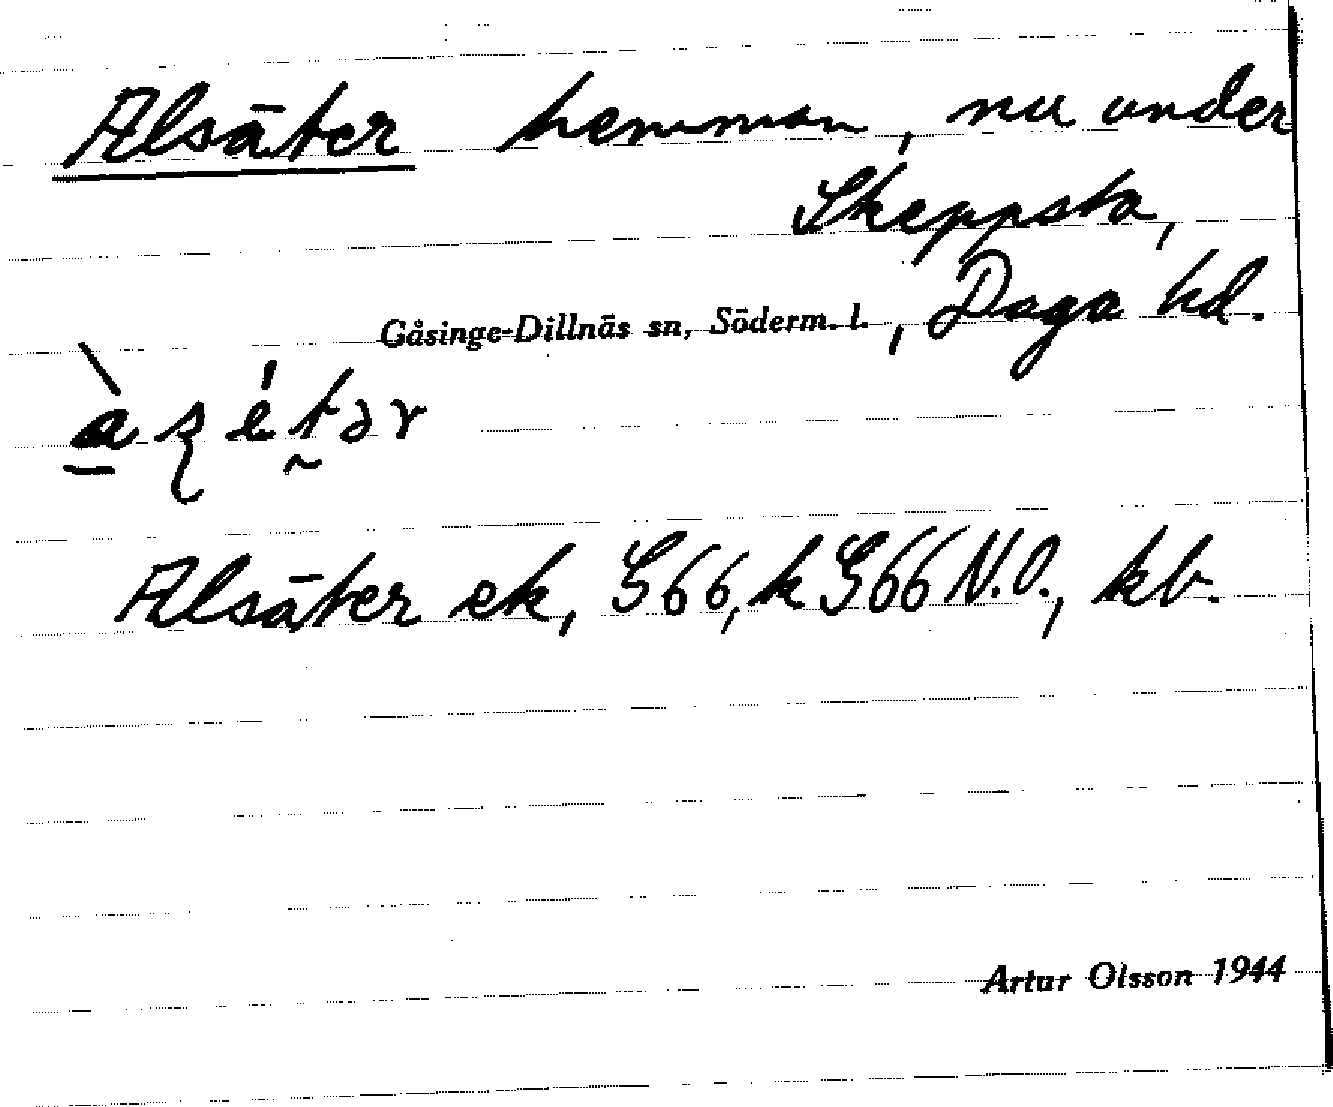 Alsäter hemman, nu under
Skeppsta,
Gåsinge-Dillnäs sn, Söderm. l., Daga hd.
Alsäter ek, S66, k S66 N.O., kb.
Artur Olsson 1944